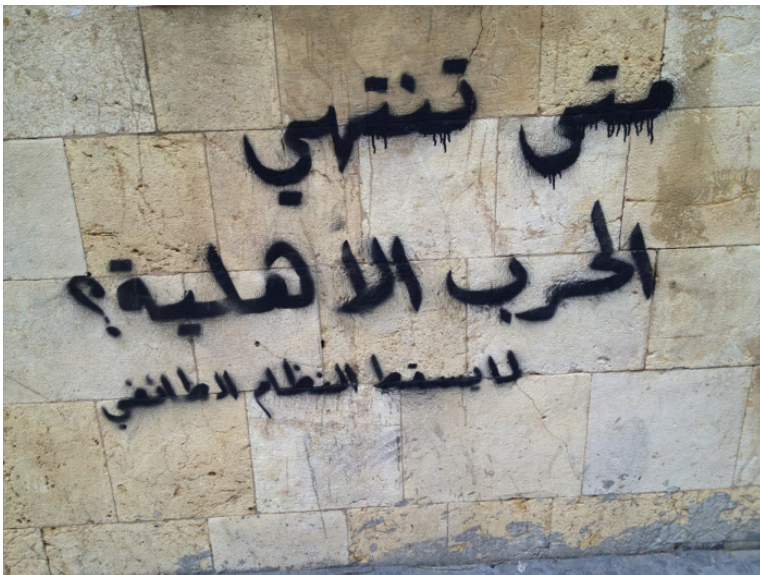 متى تنتهي
الحرب الاهلية؟
لمايسقط النظام الطائفي